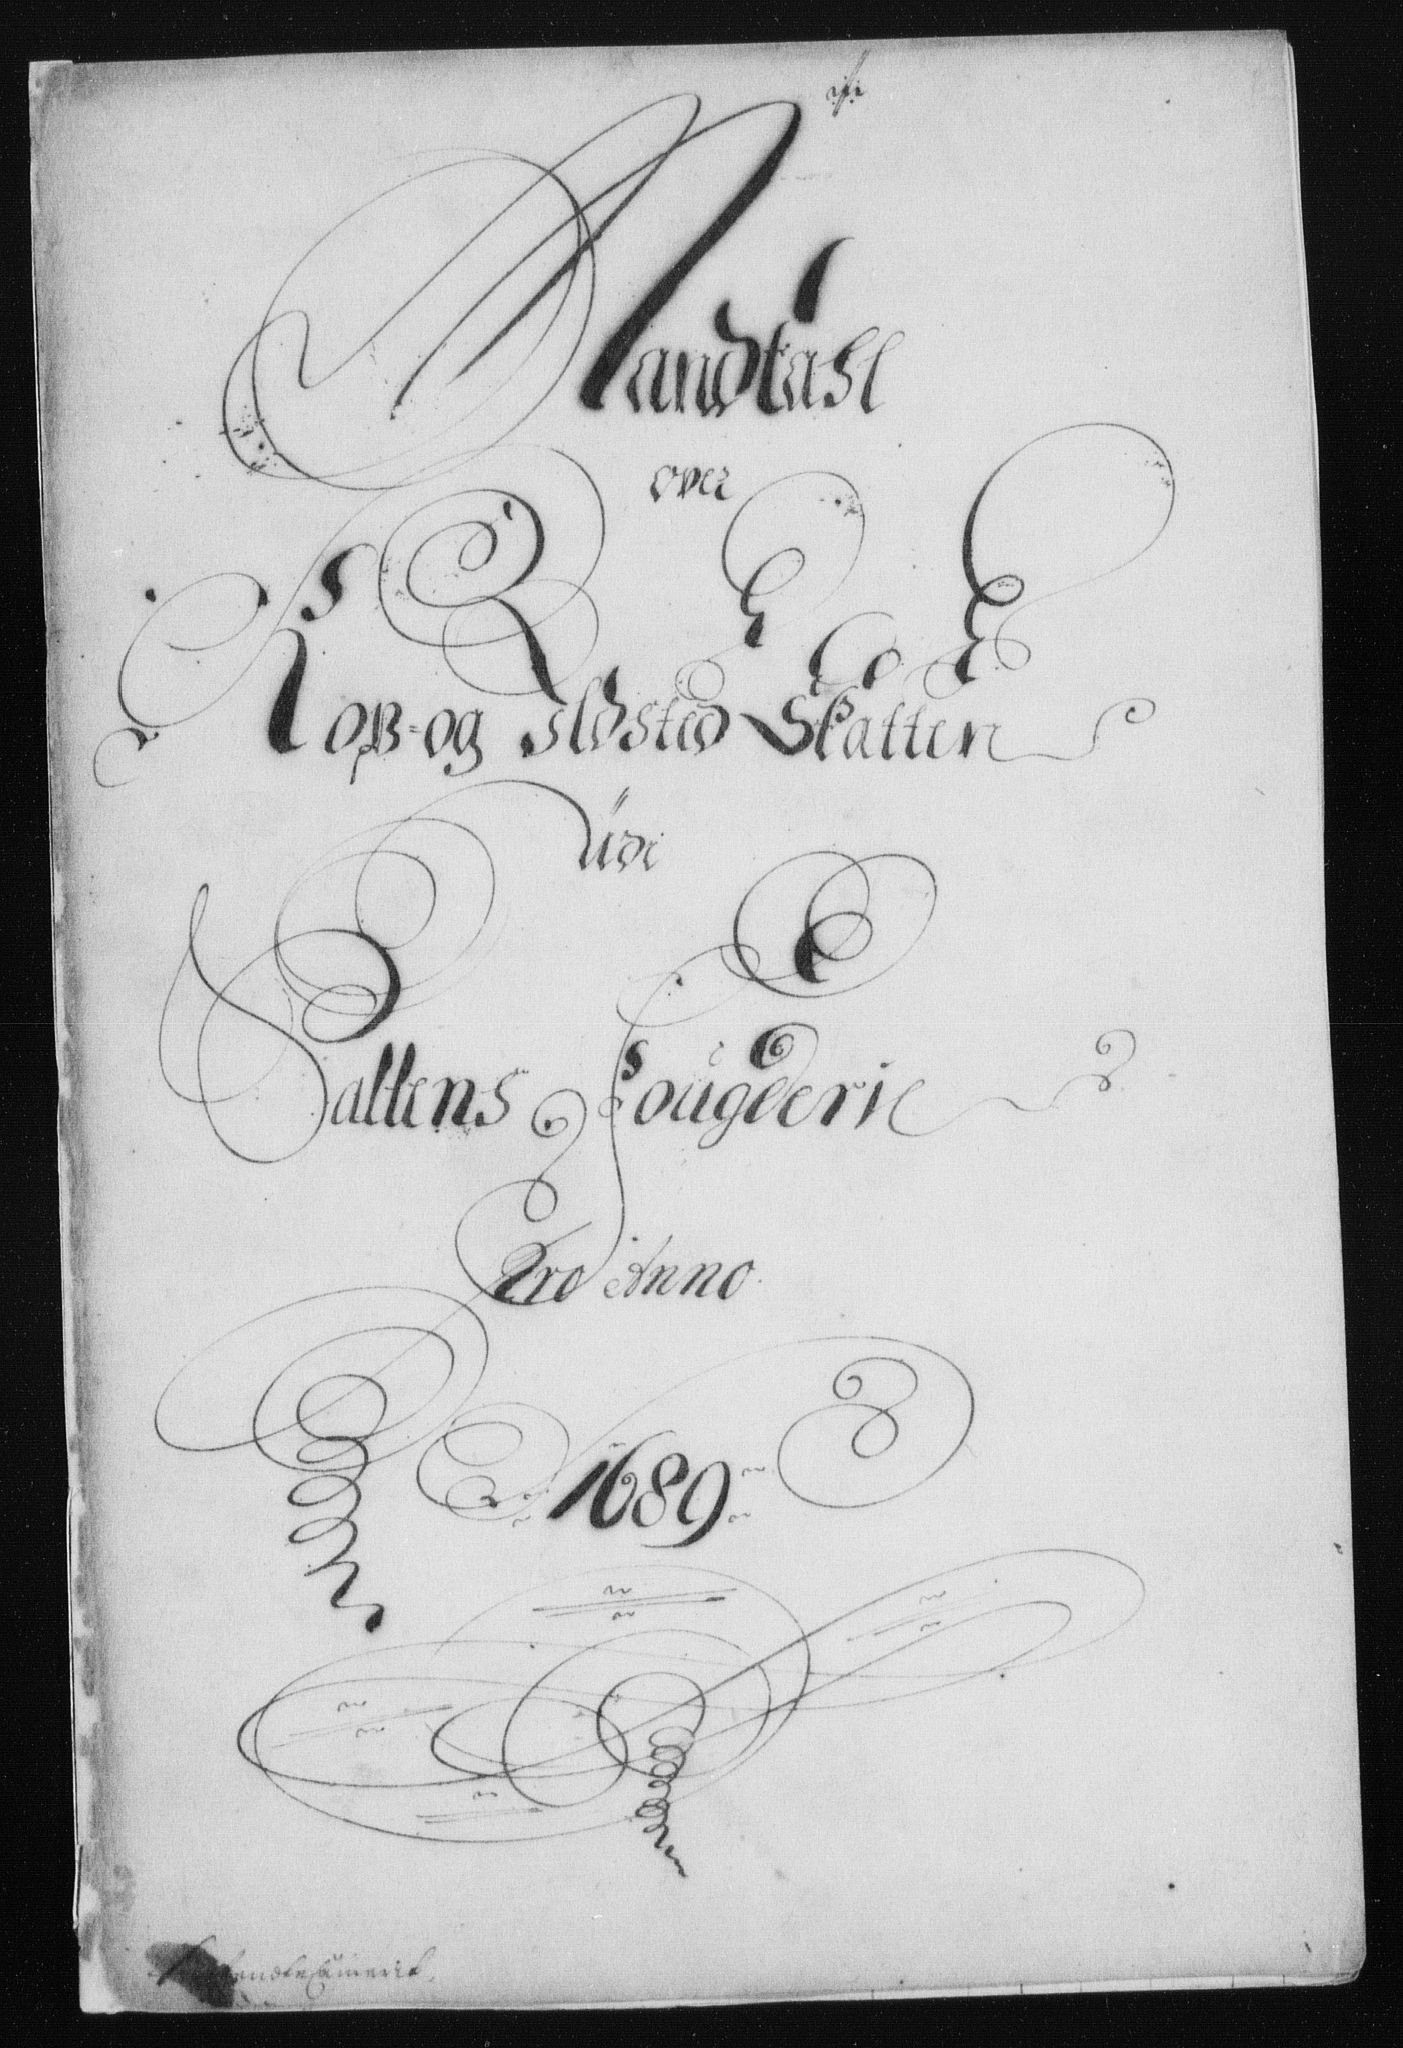 Mandtahl
over
Kop-og Ildsted Skatten
Udi
Saltens Fougderie
Pro Anno
1689